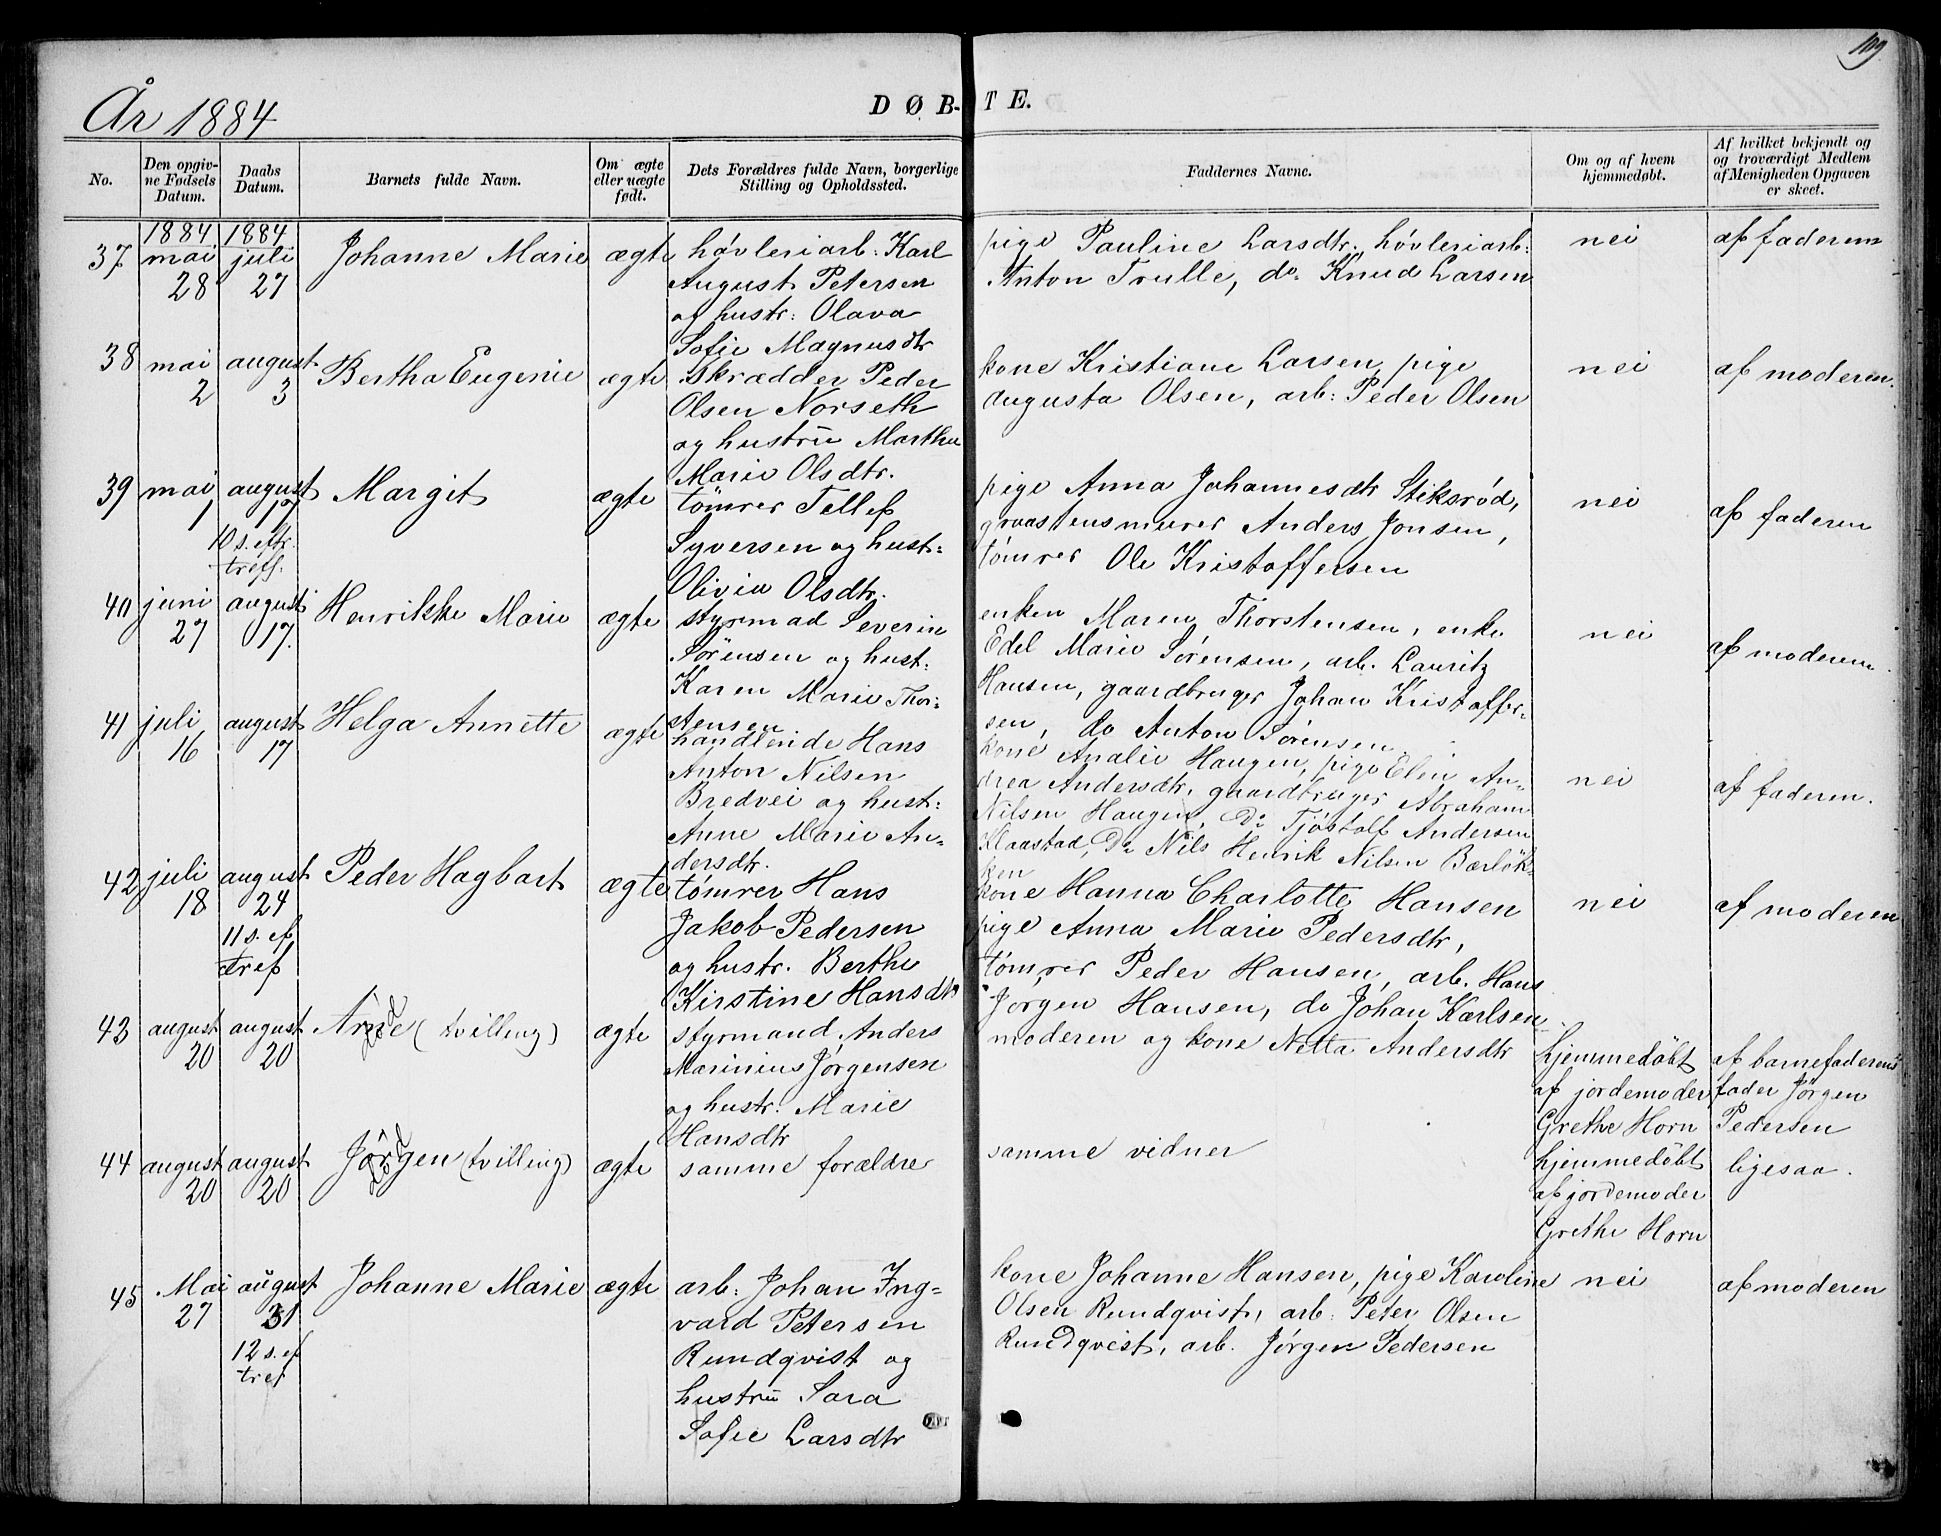 109
År 1884
DØB-TE.
No.
Den opgiv-
ne Fødsels
Datum.
Daabs
Datum.
Barnets fulde Navn.
Om ægte
eller uægte
født.
Dets Forældres fulde Navn, borgerlige
Stilling og Opholdssted.
Faddernes Navne.
Om og af hvem
hjemmedøbt.
Af hvilket bekjendt og
og troværdigt Medlem
af Menigheden Opgaven
er skeet.
37
1884
mai
28
1884
juli
27
Johanne Marie
ægte
høvleriarb: Karl
August Petersen
og hustr: Olava
Sofie Magnusdtr
pige Pauline Larsdtr, høvleriarb:
Anton Trulle, do Knud Larsen
nei
af faderen
38
mai
2
august
3
Bertha Eugenie
ægte
skrædder Peder
Olsen Norseth
og hustru Marthe
Marie Olsdtr.
kone Kristiane Larsen, pige
Augusta Olsen, arb: Peder Olsen
nei
af moderen.
39
mai
1
august
17
10 s. eftr.
tref.
Margit
ægte
tømrer Tellef
Syversen og hust:
Olivia Olsdtr.
pige Anna Johannesdtr Stiksrød,
graastensmurer Anders Jonsen,
tømrer Ole Kristoffersen
nei
af faderen
40
juni
27
august
17.
Henrikke Marie
ægte
styrmad Severin
Sørensen og hust:
Karen Marie Thor-
stensen
enken Maren Thorstensen, enke
Edel Marie Sørensen, arb. Lauritz
Hansen, gaardbruger Johan Kristoffer-
sen, do Anton Sørensen.
nei
af moderen.
41
juli
16
august
17
Helga Annette
ægte
handlende Hans
Anton Nilsen
Bredvei og hust:
Anne Marie An-
dersdtr.
kone Amalie Haugen, pige Elen An-
drea Andersdtr, gaardbruger Abraham
Nilsen Haugen, Do Tjøstolf Andersen
Klaastad, Do Nils Henrik Nilsen Bærløk-
ken
nei
af faderen.
42
juli
18
august
24
11 s. ef
tref
Peder Hagbart
ægte
tømrer Hans
Jakob Pedersen
og hustr. Berthe
Kirstine Hansdtr
kone Hanna Charlotte Hansen
pige Anna Marie Pedersdtr,
tømrer Peder Hansen, arb. Hans
Jørgen Hansen, do Johan Karlsen
nei
af moderen
43
august
20
august
20
Arne (tvilling)
død
ægte
styrmand Anders
Marinius Jørgensen
og hustr: Marie
Hansdtr
moderen og kone Netta Andersdtr
hjemmedøbt
af jordemoder
Grethe Horn
af barnefaderens
fader Jørgen
Pedersen
44
august
20
august
20
Jørgen (tvilling)
død
ægte
samme forældre
samme vidner
hjemmedøbt
af jordemoder
Grethe Horn
ligesaa.
45
Mai
27
august
31
12 s. ef
tref
Johanne Marie
ægte
arb: Johan Ing-
vard Petersen
Rundqvist og
hustru Sara
Sofie Larsdtr
kone Johanne Hansen, pige Karoline
Olsen Rundqvist, arb: Peter Olsen
Rundqvist, arb. Jørgen Pedersen
nei
af moderen